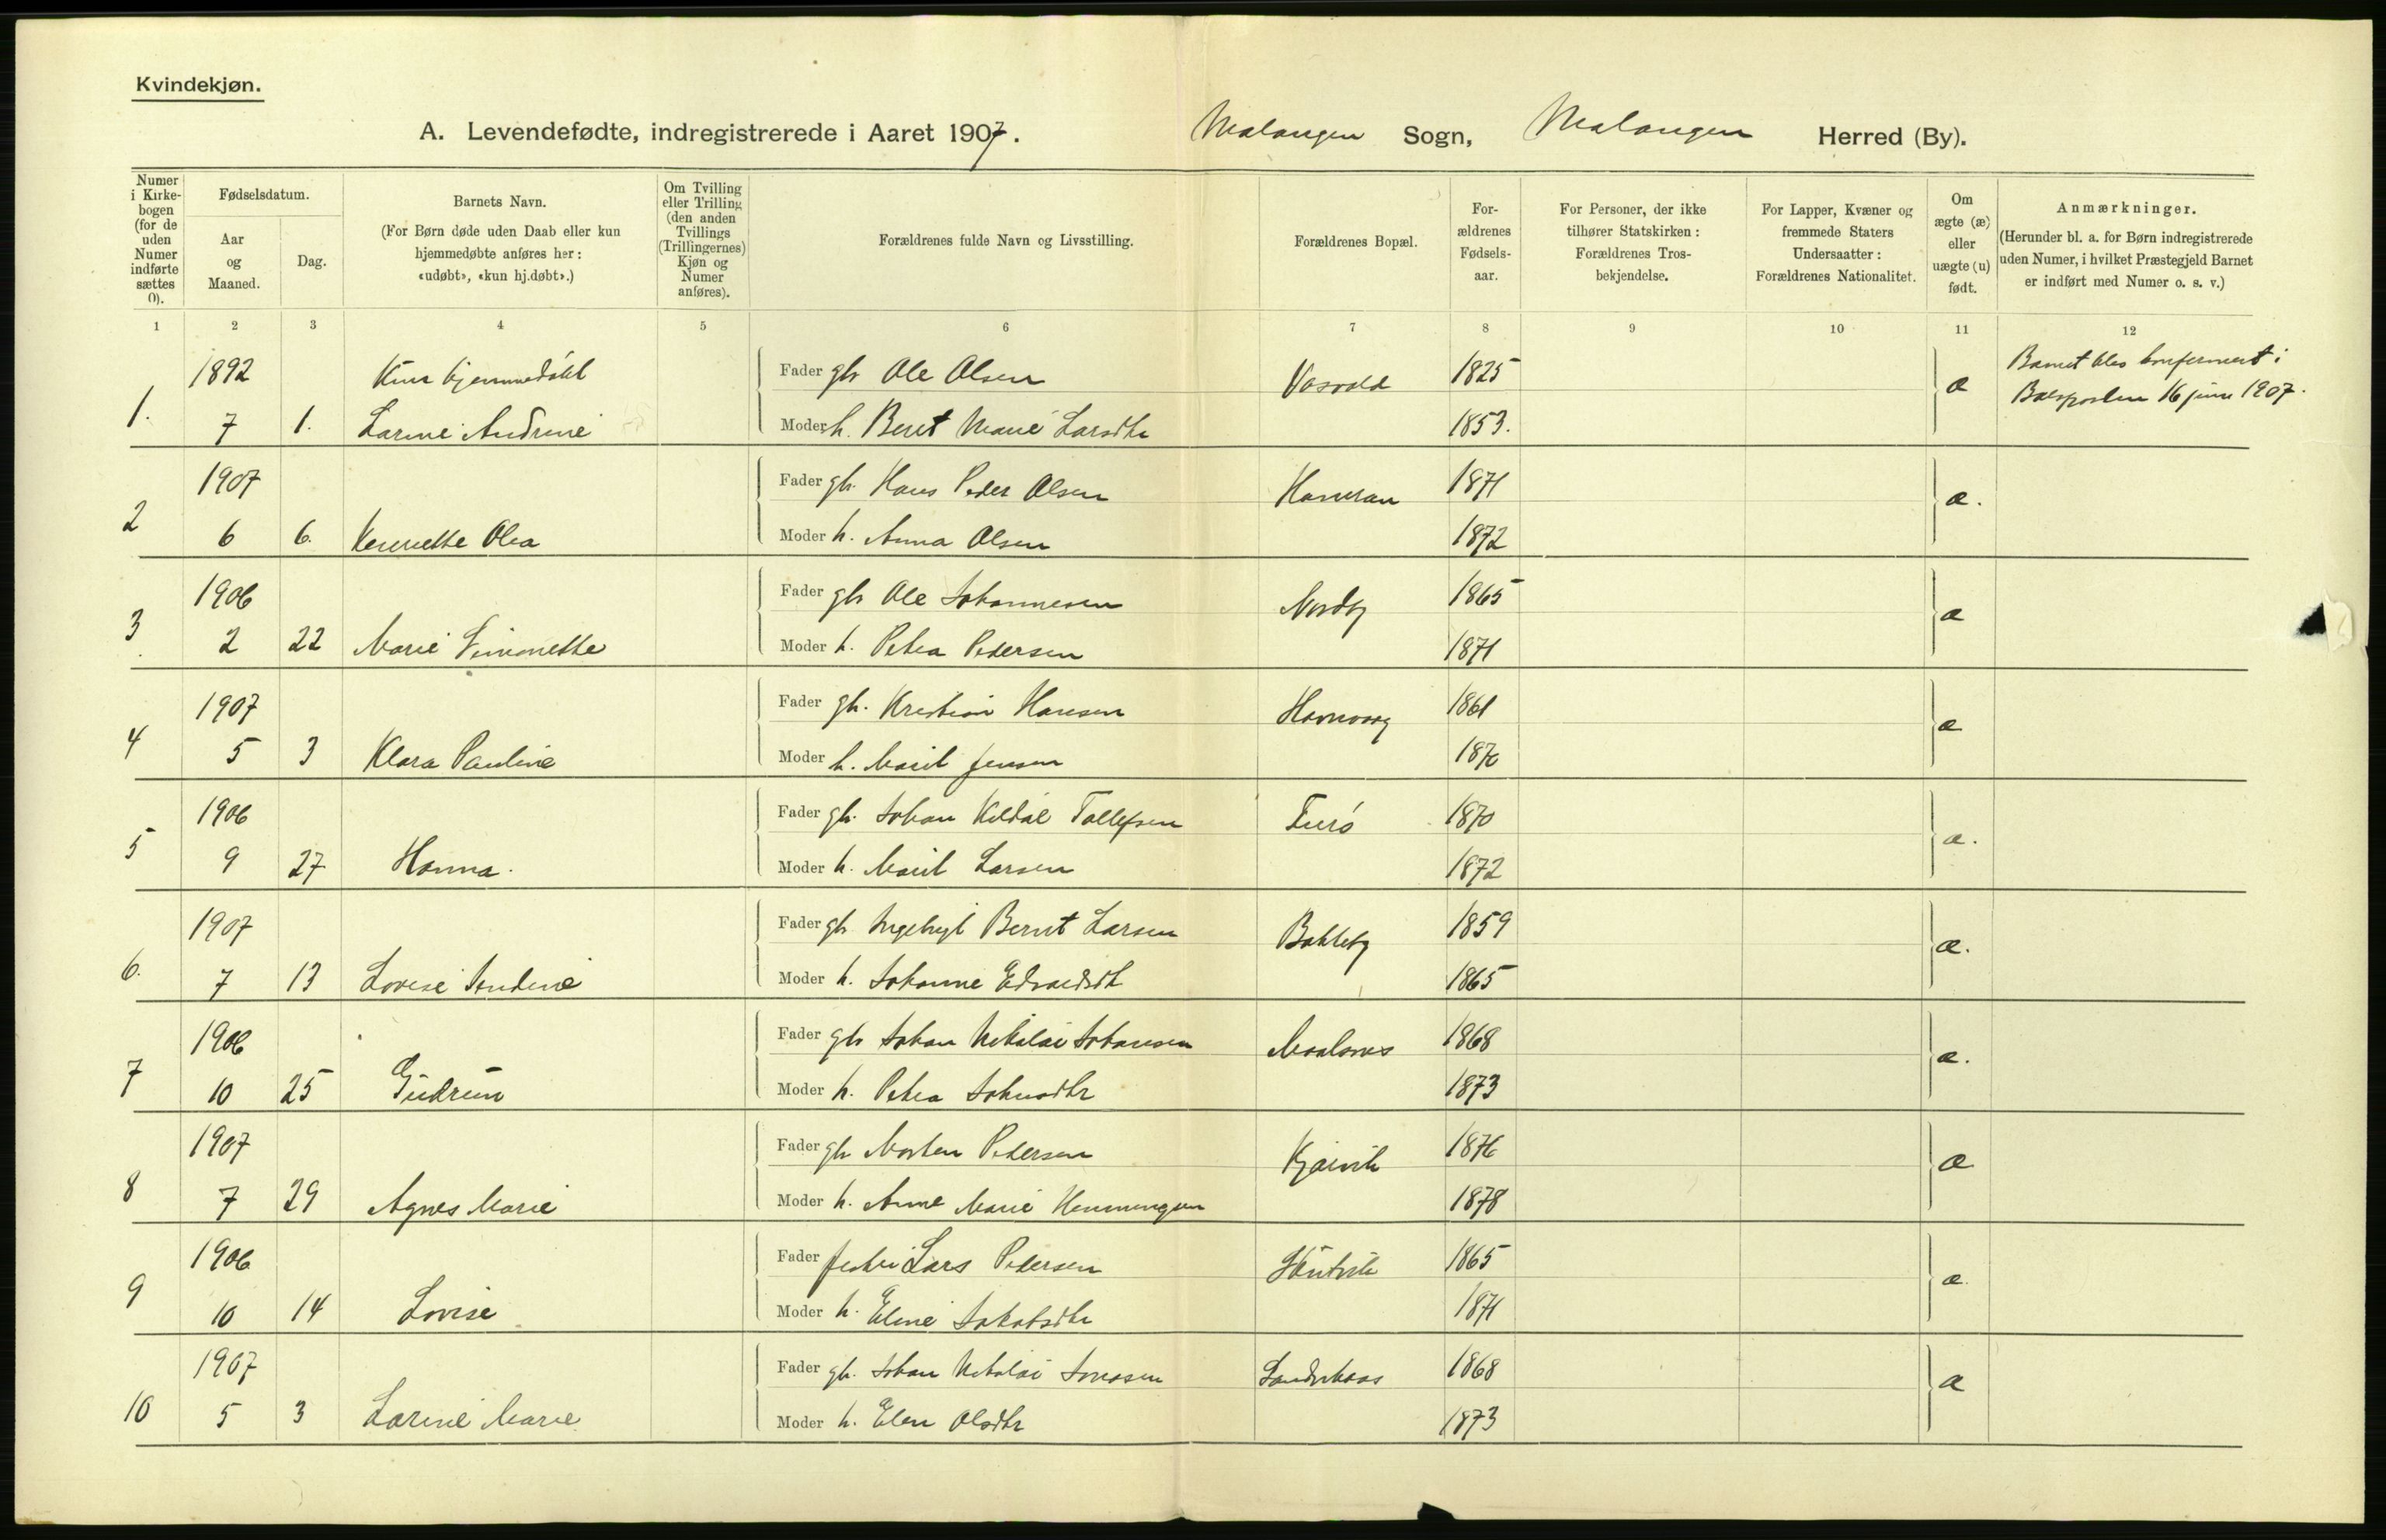 Kvindekjøn.
A. Levendefødte, indregistrerede i Aaret 1907. Malangen Sogn, Malangen Herred (By).
Numer i Kirkebogen (for de uden Numer indførte sættes 0).
Fødselsdatum.
Aar og Maaned.
Dag.
Barnets Navn.
(For Børn døde uden Daab eller kun hjemmedøbte anføres her: «udøbt», «kun hj.døbt».)
Om Tvilling eller Trilling (den anden Tvillings (Trillingernes) Kjøn og Numer anføres).
Forældrenes fulde Navn og Livsstilling.
Forældrenes Bopæl.
Forældrenes Fødselsaar.
For Personer, der ikke tilhører Statskirken: Forældrenes Trosbekjendelse.
For Lapper, Kvæner og fremmede Staters Undersaatter: Forældrenes Nationalitet.
Om ægte (æ) eller uægte (u) født.
Anmærkninger.
(Herunder bl. a. for Børn indregistrerede uden Numer, i hvilket Præstegjeld Barnet er indført med Numer o. s. v.)
1 2 3 4 5 6 7 8 9 10 11 12
1892 Kun hjemmedøbt Fader gbr Ole Olsen 1825 Barnet blev konfirmert i
1. 7 1. Larine Andrine Moder h. Berit Marie Larsdtr 1853. æ 16 juni 1907.
1907 Fader gbr. Hans Peder Olsen 1871
2 6 6. Olea Moder h. Anna Olsen 1872 æ.
1906 Fader gbr Ole Johannesen Nordby 1865
3 2 22 Marie Simonette Moder h. Petra Pedersen 1871 æ
1907 Fader gbr. Kristian Hansen 1861
4 5 3 Klara Pauline Moder h. Marit Jensen æ
1906 Fader gbr. Johan Kildal Tollefsen 1870
5 9 27 Hanna. Moder h. Marit Larsen 1872 æ.
1907 Fader gbr Ingebrigt Bernt Larsen Bakkeby 1859
6. 7 13 Lovise Moder h. Johanne Edvardsdtr 1865 æ.
1906 Fader gbr Johan Nikolai Johansen Maalsnes 1868
7 10 25 Gudrun Moder h. Petra Johnsdtr 1873 æ.
1907 Fader gbr Morten Pedersen 1876
8 7 29 Agnes Marie Moder h. Anne Marie Henningsen 1878 æ
1906 Fader Lars Pedersen 1865
9 10 14 Lovise Moder h. Eline Jakobsdtr 1871 æ.
1907 Fader gbr. Johan Nikolai Jonassen 1868
10 5 3 Larine Marie Moder h. Elen Olsdtr 1873 æ